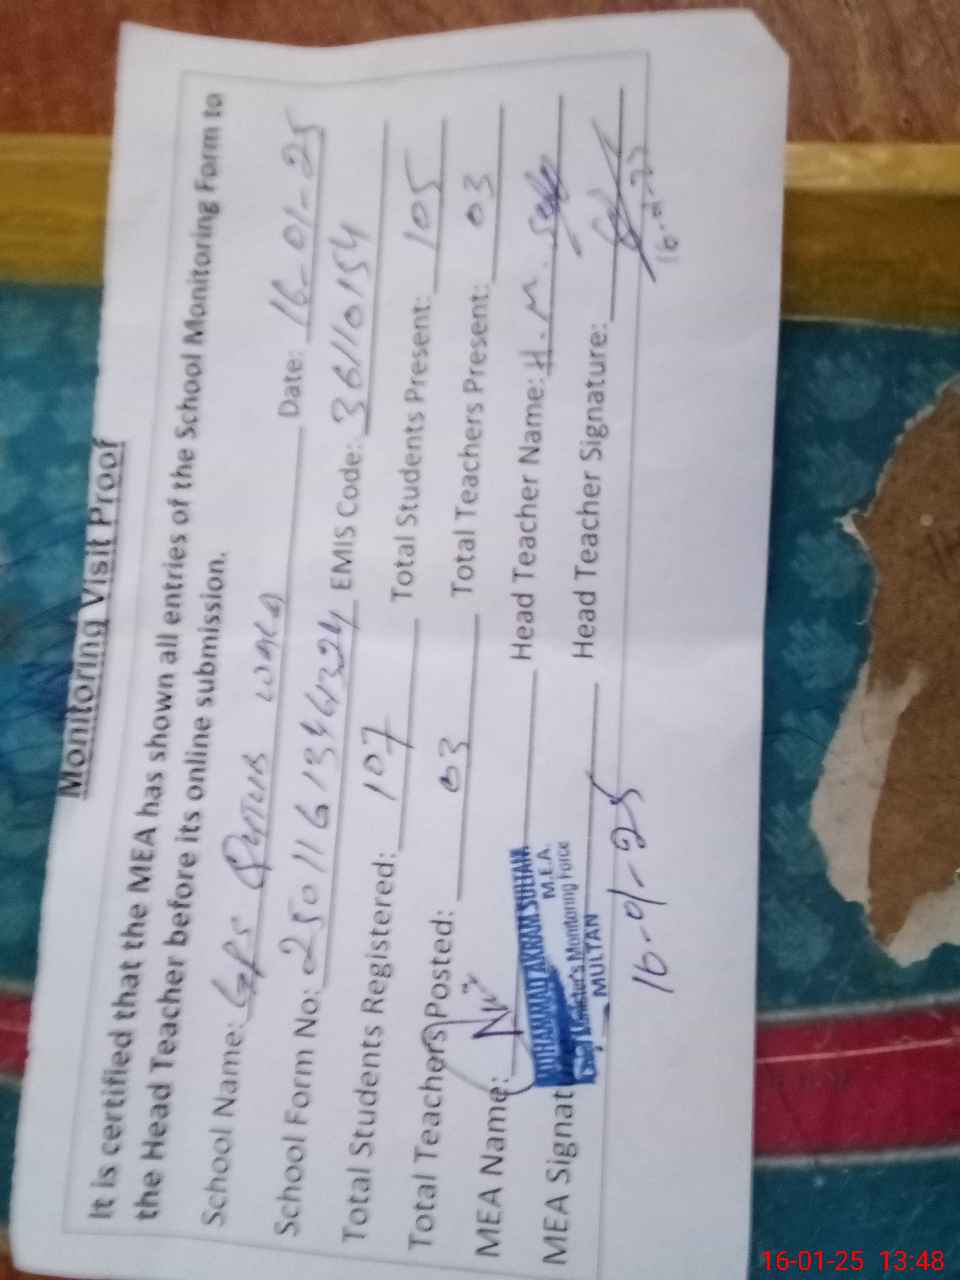 Monitoring Visit Proof
It is certified that the MEA has shown all entries of the School Monitoring Form to
the Head Teacher before its online submission.
School Name: GPS wala Date: 16-01-25
School Form No: 25011613461324 EMIS Code: 36110154
Total Students Registered: 107 Total Students Present: 105
Total Teachers Posted: 03 Total Teachers Present: 03
MEA Name: Head Teacher Name: H.M.
MUHAMMAD AKRAM SULTAN
M.E.A.
MEA Signat Head Teacher Signature:
Chief Minister's Monitoring Force
MULTAN
16-01-25
16-01-25 13:48